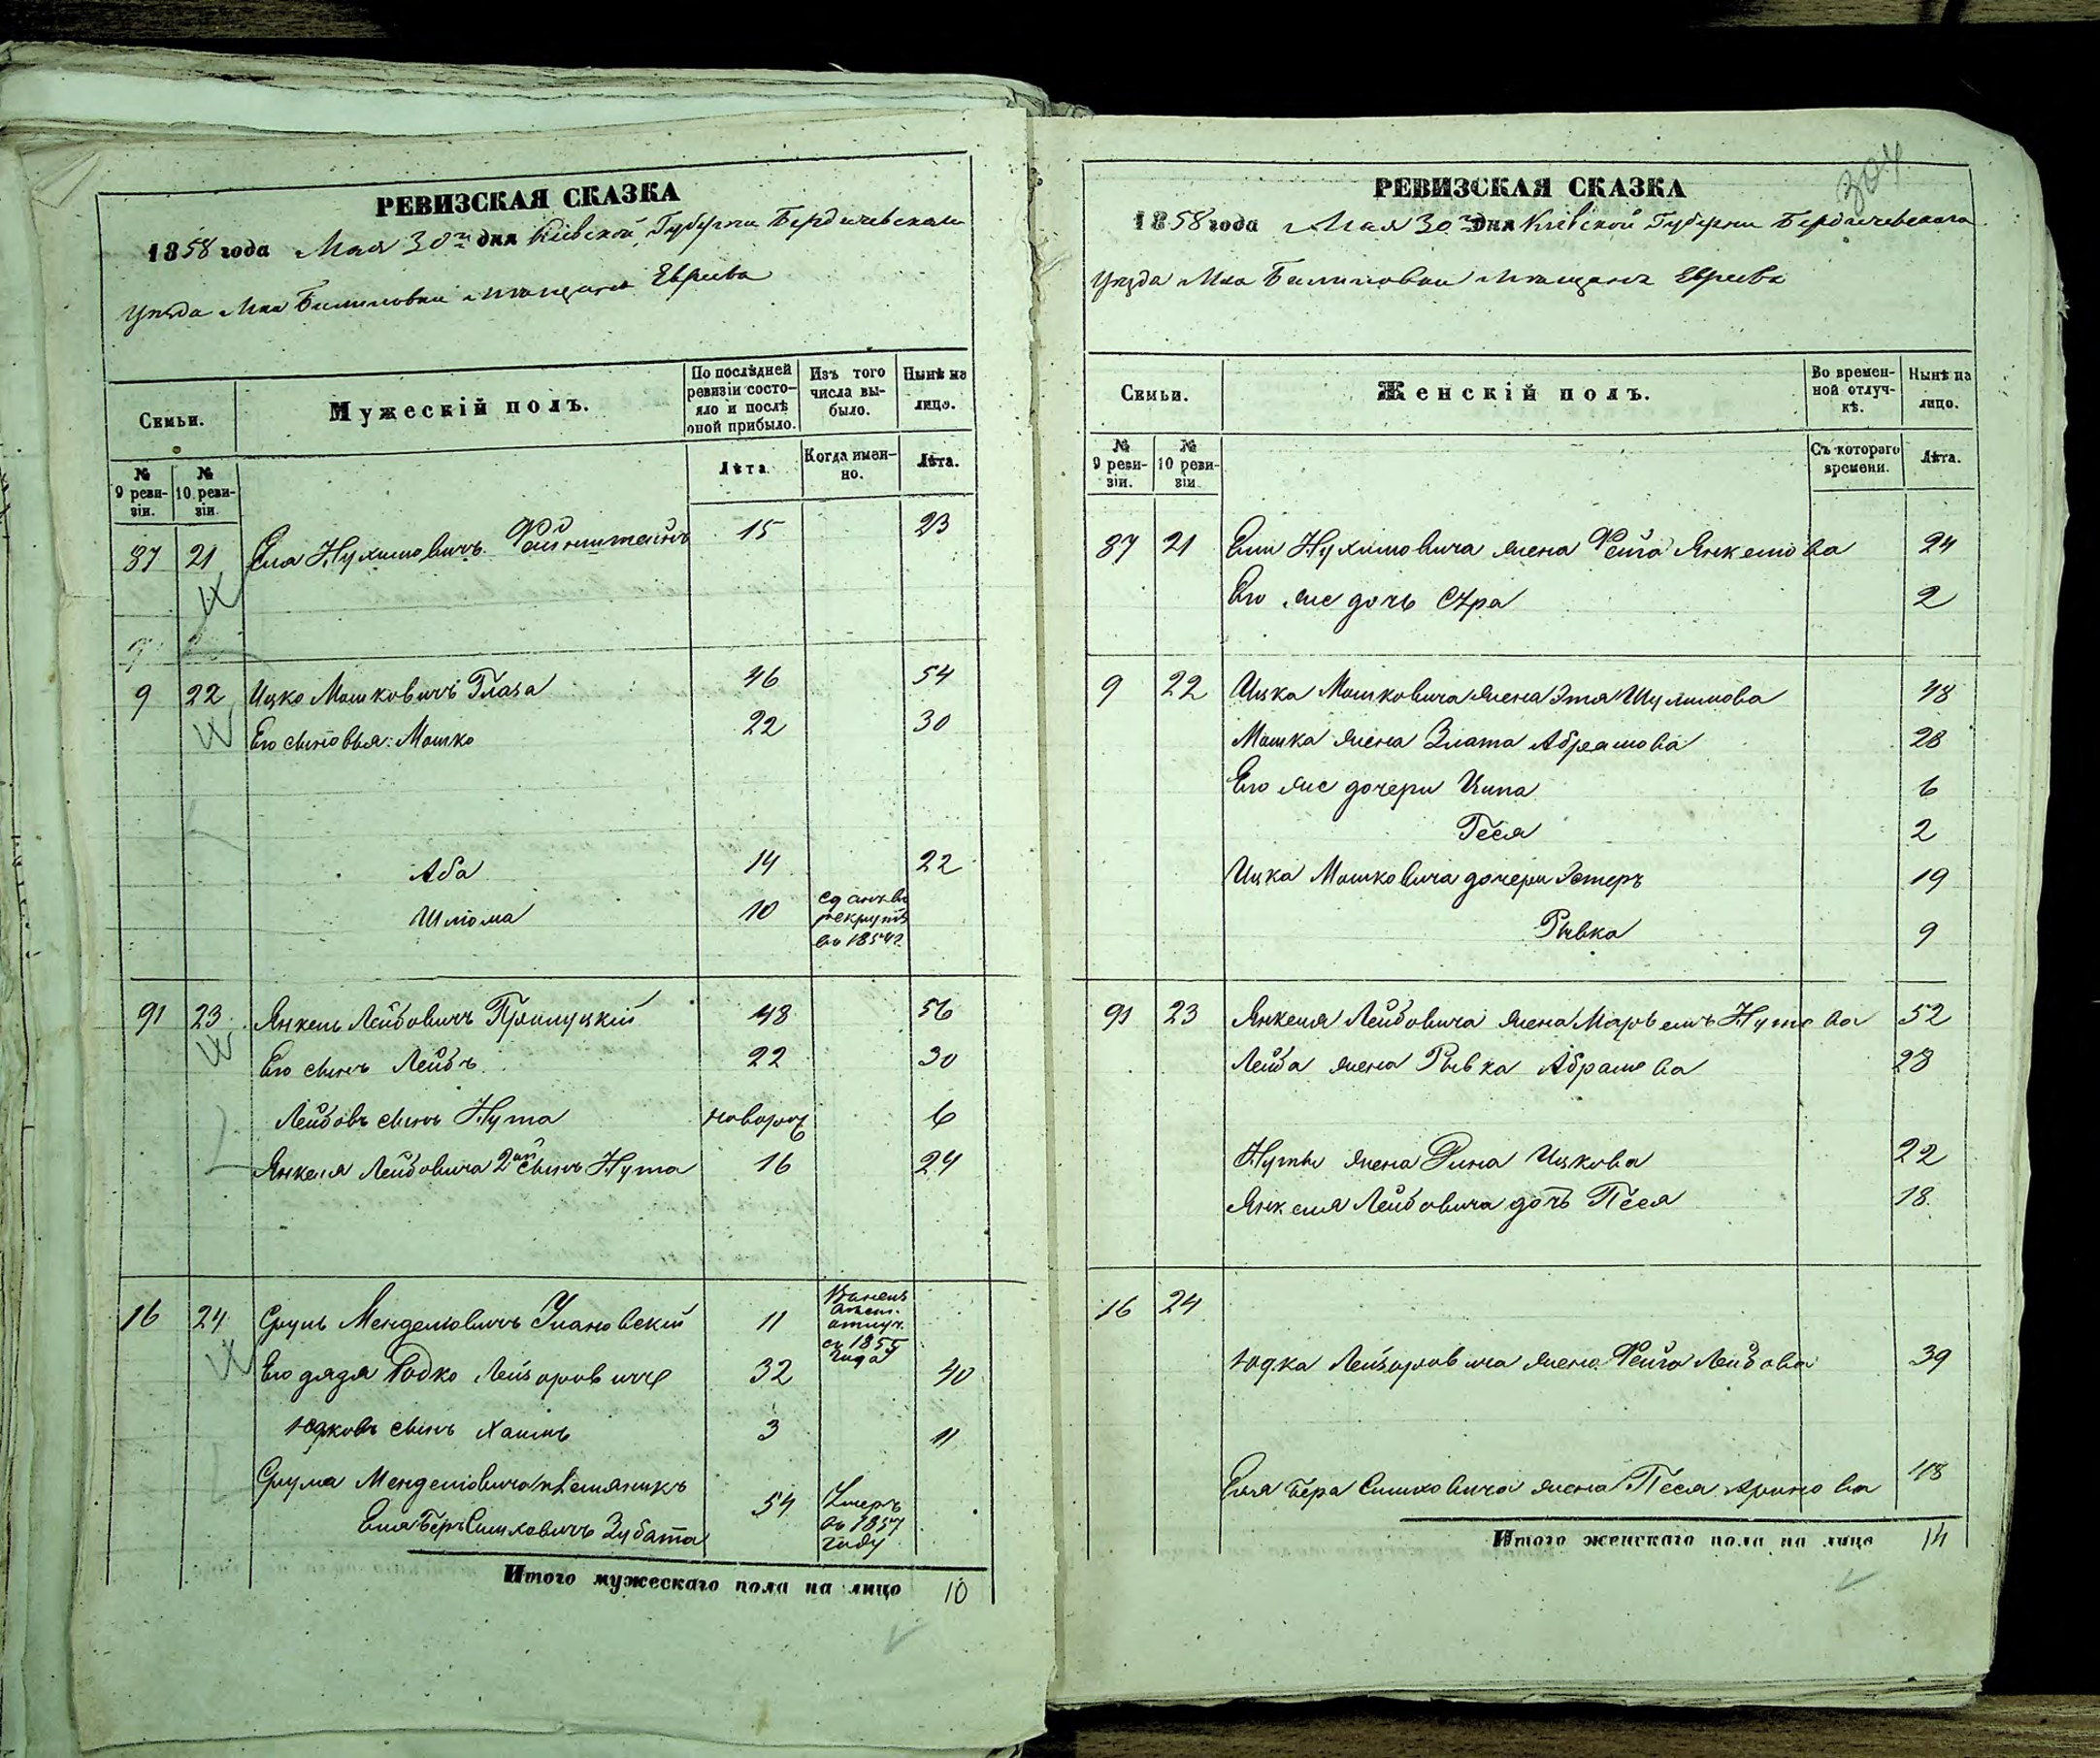 РЕВИЗСКАЯ СКАЗКА
1858 года Мая 30го дня Кіевской Губерніи Бердичевскаго
Уѣзда М-ка Билиловки мѣщанъ Евреевъ
Семьи.
Мужескій полъ.
По послѣдней ревизіи состояло и послѣ оной прибыло.
Изъ того числа выбыло.
Нынѣ на лицо.
№ 9 ревизіи.
№ 10 ревизіи.
Лѣта
Когда именно.
Лѣта.
87 21 Еля Нухимовичъ Файнштейнъ 15 23
9 22 Ицко Мошковичъ Глаза 46 54
Его сыновья: Мошко 22 30
Аба 14 22
Шлома 10 сданъ въ
рекруты
въ 1854 г.
91 23 Янкель Лейбовичъ Прилуцкій 48 56
Его сынъ Лейбъ 22 30
Лейбовъ сынъ Нута новорож 6
Янкеля Лейбовича 2ой сынъ Нута 16 24
16 24 Сруль Менделювичъ Улановскій 11
отлуч.
съ 1855
года
Его дядя Юдко Лейзоровичъ 32 40
Юдковъ сынъ Хаимъ 3 11
Срула Менделювича племянникъ
Еля Беръ Симховичъ Зубата 54 Умеръ
въ 1857
году
Итого мужескаго пола на лицо 10
304
РЕВИЗСКАЯ СКАЗКА
1858 года Мая 30го дня Кіевской Губерніи Бердичевскаго
Уѣзда М-ка Билиловки мѣщанъ Евреевъ
Семьи.
Женскій полъ.
Во временной отлучкѣ.
Нынѣ на лицо.
№ 9 ревизіи.
№ 10 ревизіи
Съ котораго времени.
Лѣта.
87 21 Ели Нухимовича жена Фейга Янкелова 24
Его же дочь Сура 2
9 22 Ицка Мошковича жена Этя Шулимова 48
Мошка жена Злата Абрамова 28
Его же дочери Ципа 6
Геся 2
Ицка Мошковича дочери Эстеръ 19
Рывка 9
91 23 Янкеля Лейбовича жена Марьемъ Нутова 52
Лейба жена Рывка Абрамова 28
Нуты жена Дина Ицкова 22
Янкеля Лейбовича дочь Песя 18
16 24
Юдка Лейзоровича жена Фейга Лейбова 39
Еля Бера Симховича жена Песя Аронова 48
Итого женскаго пола на лицо 14